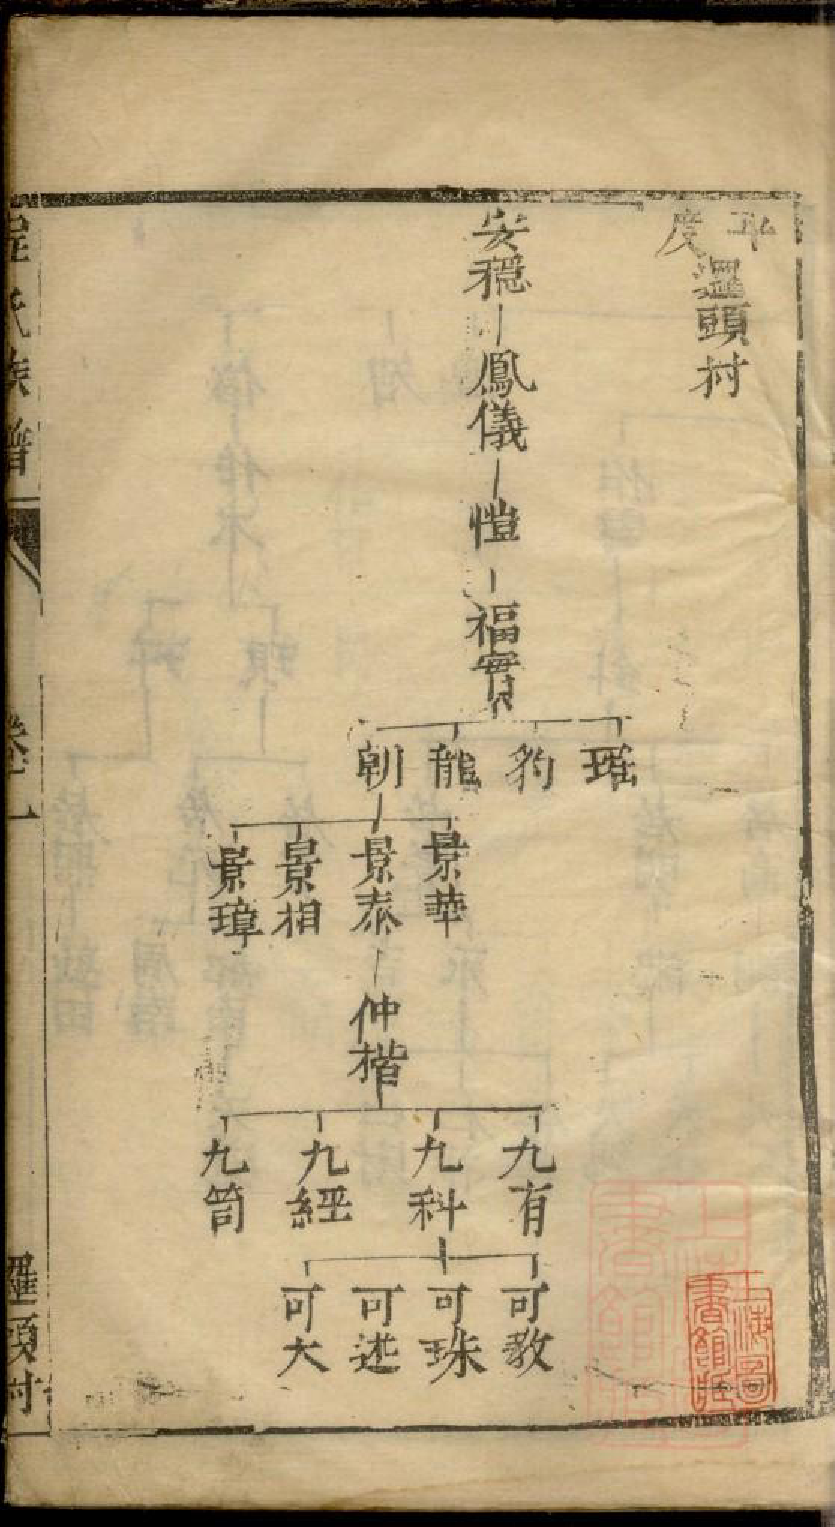 平度
邏頭村
安穩
鳳儀
愷
福實
琚
豹
龍
朝
景華
景泰
景相
景璋
仲楷
九有
九科
九經
九笥
可教
可珠
可述
可大
程氏族譜
卷一
邏頭村
上海圖書館藏